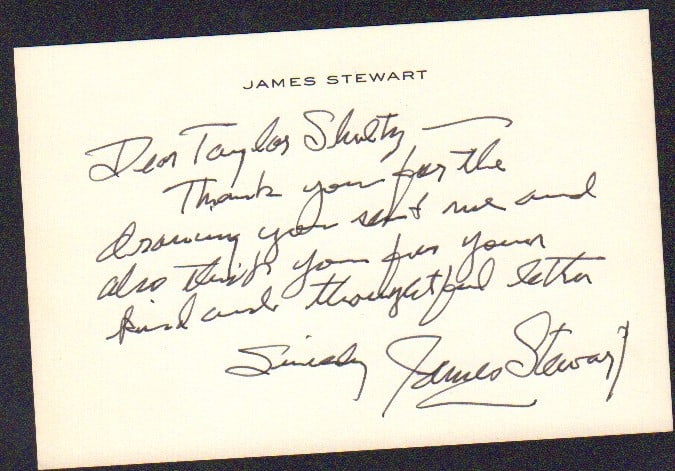 JAMES STEWART
Dear Taylor Shultz —
Thank you for the
drawing you sent me and
also thank you for your
kind and thoughtful letter
Sincerely James Stewart